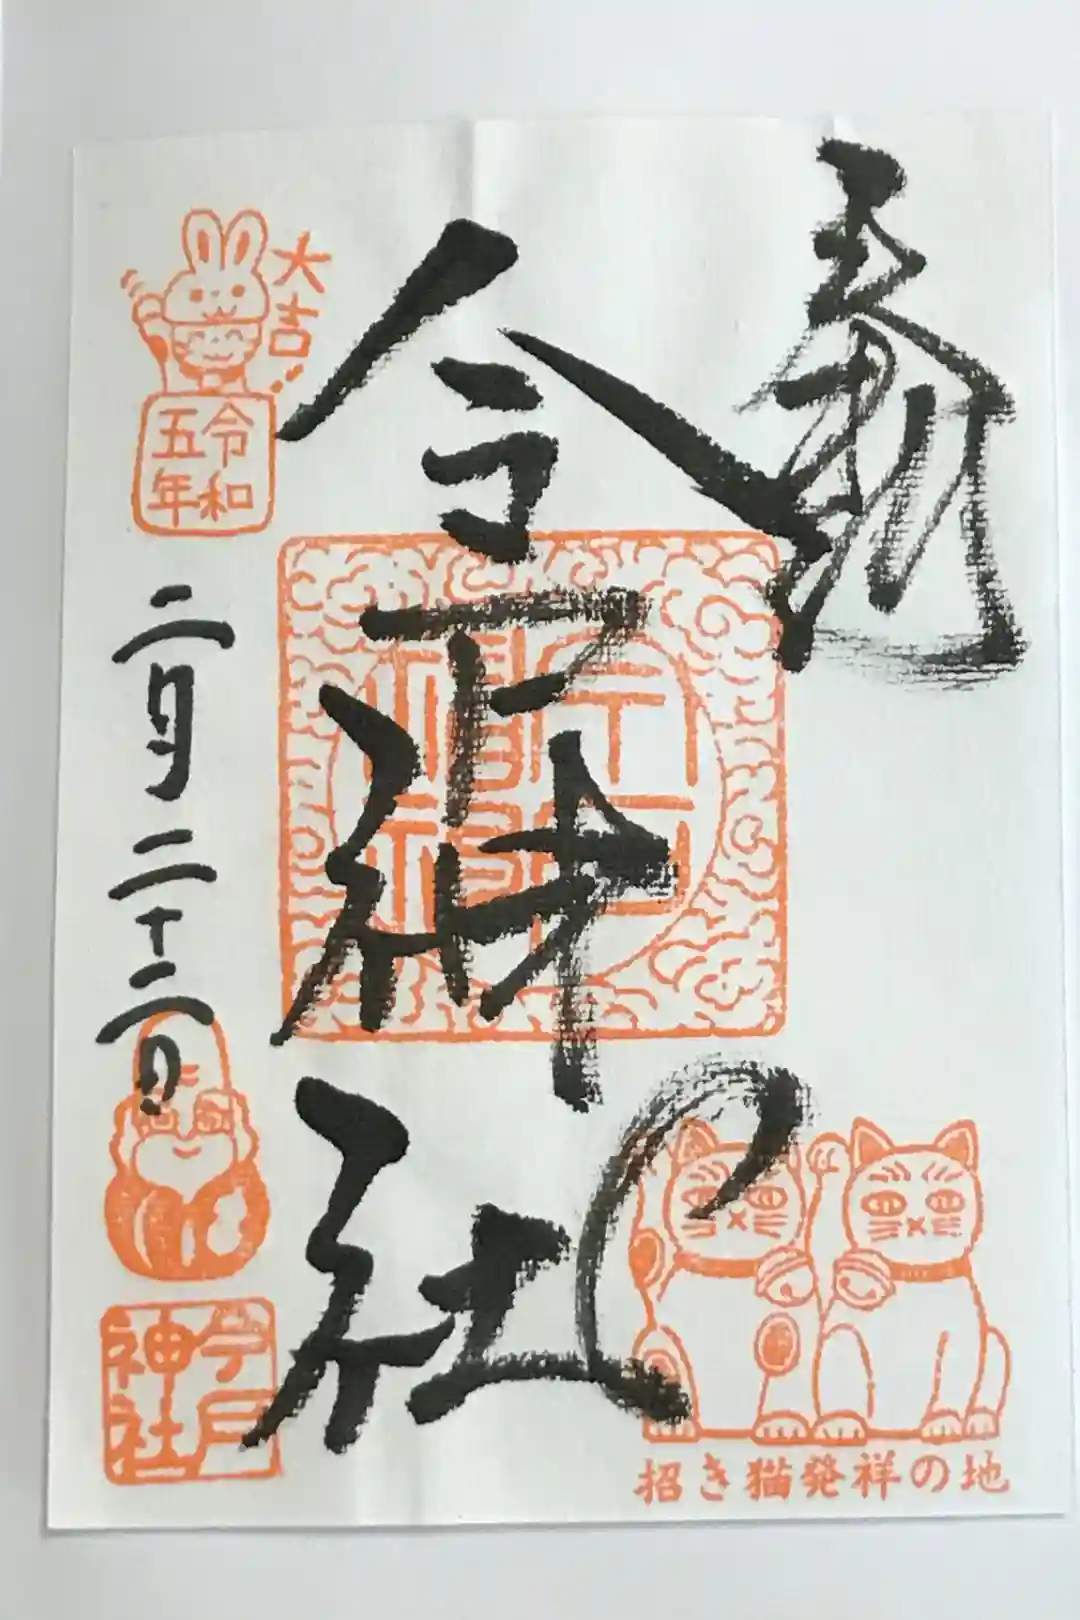 奉拝
今戸神社
大吉!!
令和
五年
二月二十二日
今戸
神社
招き猫発祥の地